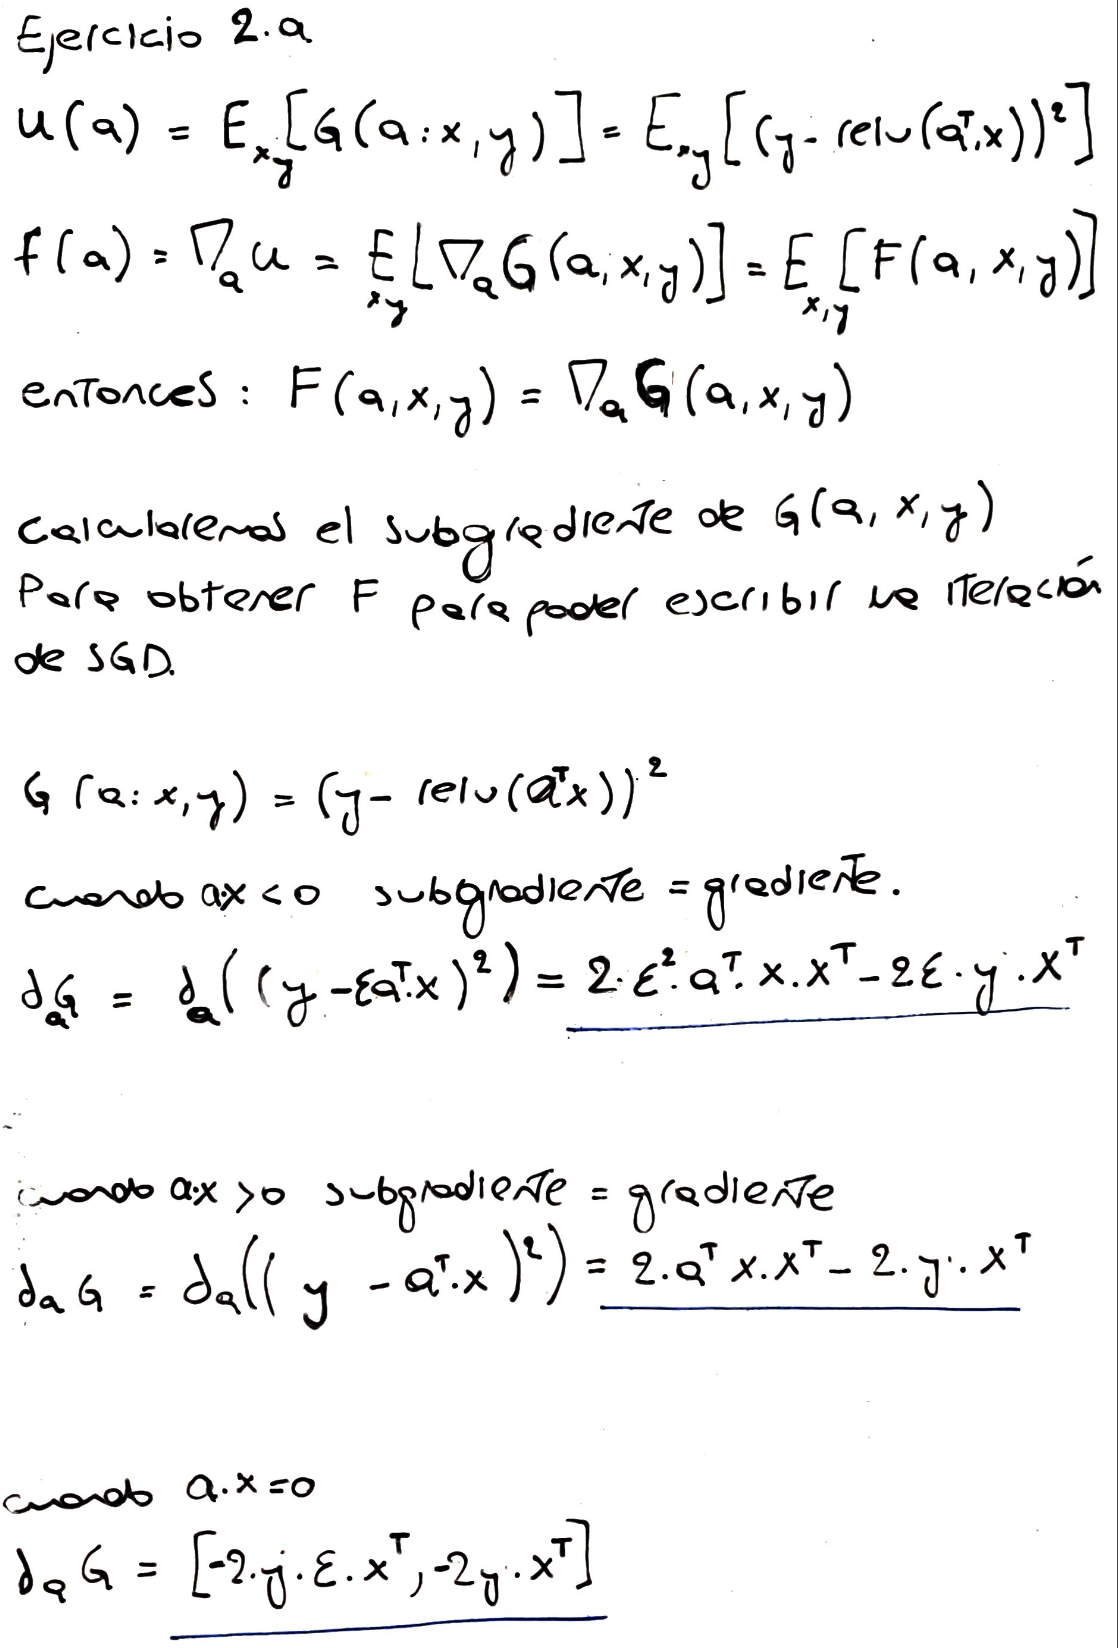 Ejercicio 2.a
u(a) = E_xy[G(a:x,y)] = E_xy[(y-relu(a^T.x))²]
f(a) = ∇_a u = E_xy[∇_a G(a,x,y)] = E_x,y[F(a,x,y)]
entonces: F(a,x,y) = ∇_a G(a,x,y)
Calcularemos el subgradiente de G(a,x,y)
Para obtener F para poder escribir la iteración
de SGD.
G(a:x,y) = (y-relu(a^T x))²
cuando a.x<0 subgradiente = gradiente.
∂_a G = ∂_a((y-εa^T.x)²) = 2.ε².a^T.x.x^T-2ε.y.x^T
cuando a.x>0 subgradiente = gradiente
∂_a G = ∂_a((y-a^T.x)²) = 2.a^T x.x^T-2.y.x^T
cuando a.x=0
∂_a G = [-2.y.ε.x^T,-2y.x^T]